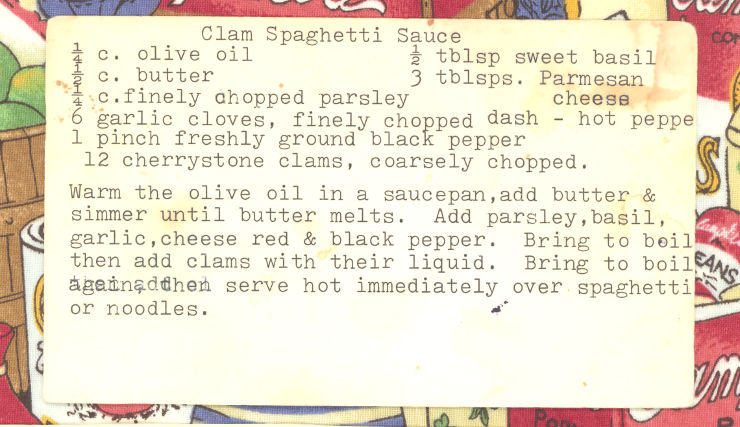 Clam Spaghetti Sauce
¼ c. olive oil ½ tblsp sweet basil
½ c. butter 3 tblsps. Parmesan
¼ c.finely chopped parsley cheese
6 garlic cloves, finely chopped dash - hot peppe
1 pinch freshly ground black pepper
12 cherrystone clams, coarsely chopped.
Warm the olive oil in a saucepan,add butter &
simmer until butter melts. Add parsley,basil,
garlic,cheese red & black pepper. Bring to boil
then add clams with their liquid. Bring to boil
again, then serve hot immediately over spaghetti
or noodles.
EANS